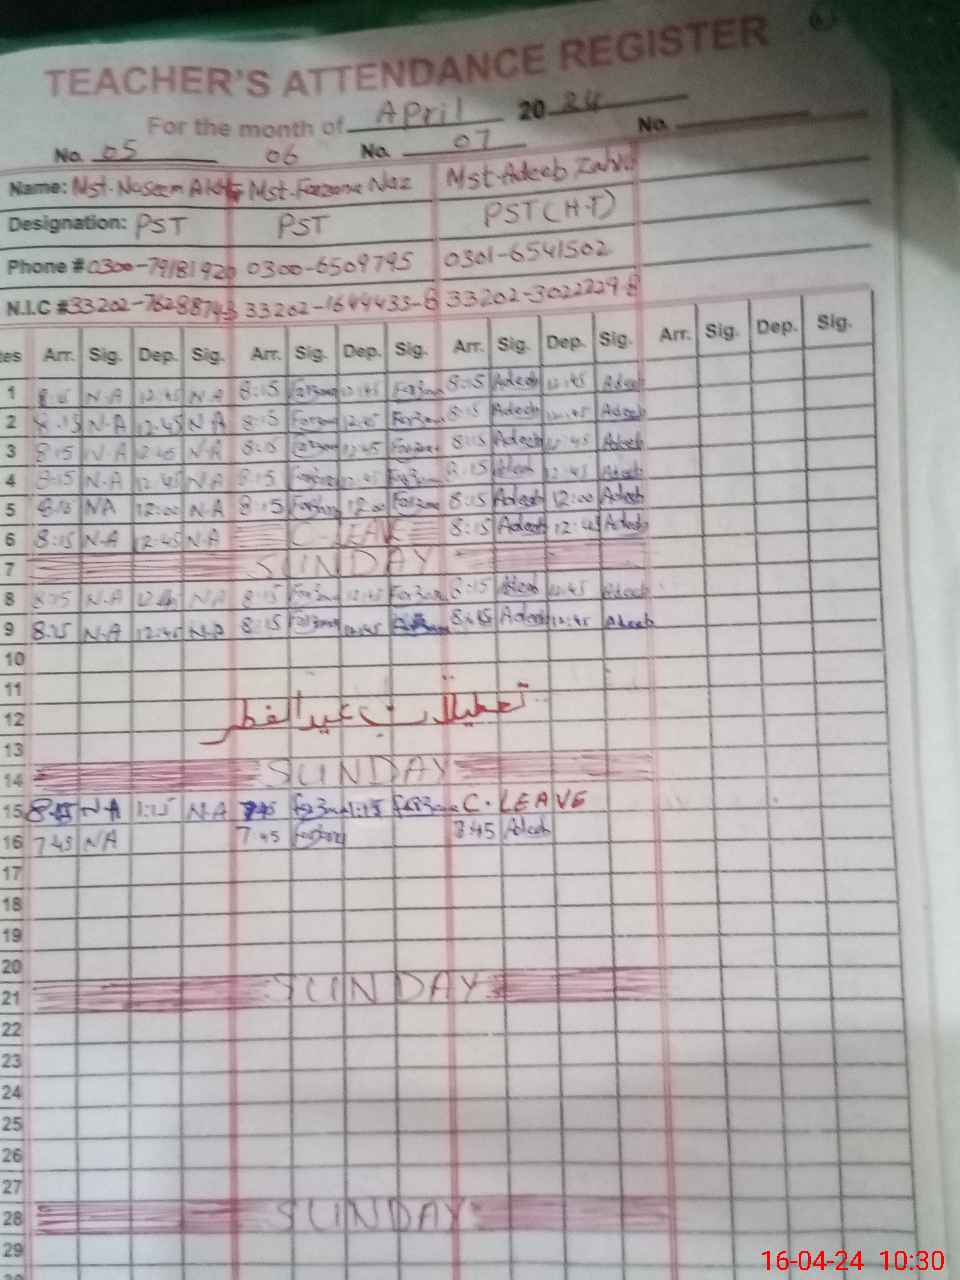 TEACHER'S ATTENDANCE REGISTER
For the month of April 2024
No. 05 06 No. 07 No.
Name: Mst. Naseem Akhtr Mst. Farzana Naz Mst Adeeb Zahid
Designation: PST PST PST (H.T)
Phone # 0300-7918192 0300-6509795 0301-6541502
N.I.C # 33202-7628874-8 33202-1644433-8 33202-3022229-8
tes Arr. Sig. Dep. Sig. Arr. Sig. Dep. Sig. Arr. Sig. Dep. Sig. Arr. Sig. Dep. Sig.
1 8:15 N-A 12:45 N-A 8:15 Farzana 12:45 Farzana 8:15 Adeeb 12:45 Adeeb
2 8:15 N-A 12:45 N-A 8:15 Farzana 12:45 Farzana 8:15 Adeeb 12:45 Adeeb
3 8:15 N-A 12:45 N-A 8:15 Farzana 12:45 Farzana 8:15 Adeeb 12:45 Adeeb
4 8:15 N-A 12:45 N-A 8:15 Farzana 12:45 Farzana 8:15 Adeeb 12:45 Adeeb
5 8:15 NA 12:00 N-A 8:15 Farzana 12:00 Farzana 8:15 Adeeb 12:00 Adeeb
6 8:15 N-A 12:45 N-A C-LEAVE 8:15 Adeeb 12:45 Adeeb
7 SUNDAY
8 8:15 N-A 12:45 N-A 8:15 Farzana 12:45 Farzana 8:15 Adeeb 12:45 Adeeb
9 8:15 N-A 12:45 N-A 8:15 Farzana 12:45 8:15 Adeeb 12:45 Adeeb
10
11
12 تعطیلات عیدالفطر
13
14 SUNDAY
15 N-A 1:15 N-A 7:45 Farzana 1:15 Farzana C. LEAVE
16 7:45 NA 7:45 Farzana Adeeb
17
18
19
20
21 SUNDAY
22
23
24
25
26
27
28 SUNDAY
29
16-04-24 10:30